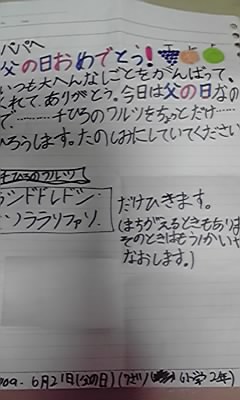 パパへ
父の日おめでとう!
いつも大へんなしごとをがんばって、
くれて、ありがとう。今日は父の日なの
で、………千ひろのワルツをちょっとだけ……
ひろうします。たのしみにしていてください
千ひろのワルツ
ランドドレドシ
ミソラララソファソ.
だけひきます。
(まちがえるときもあり
そのときはもう1かい
なおします。)
6月21日(父の日)
小学2年)